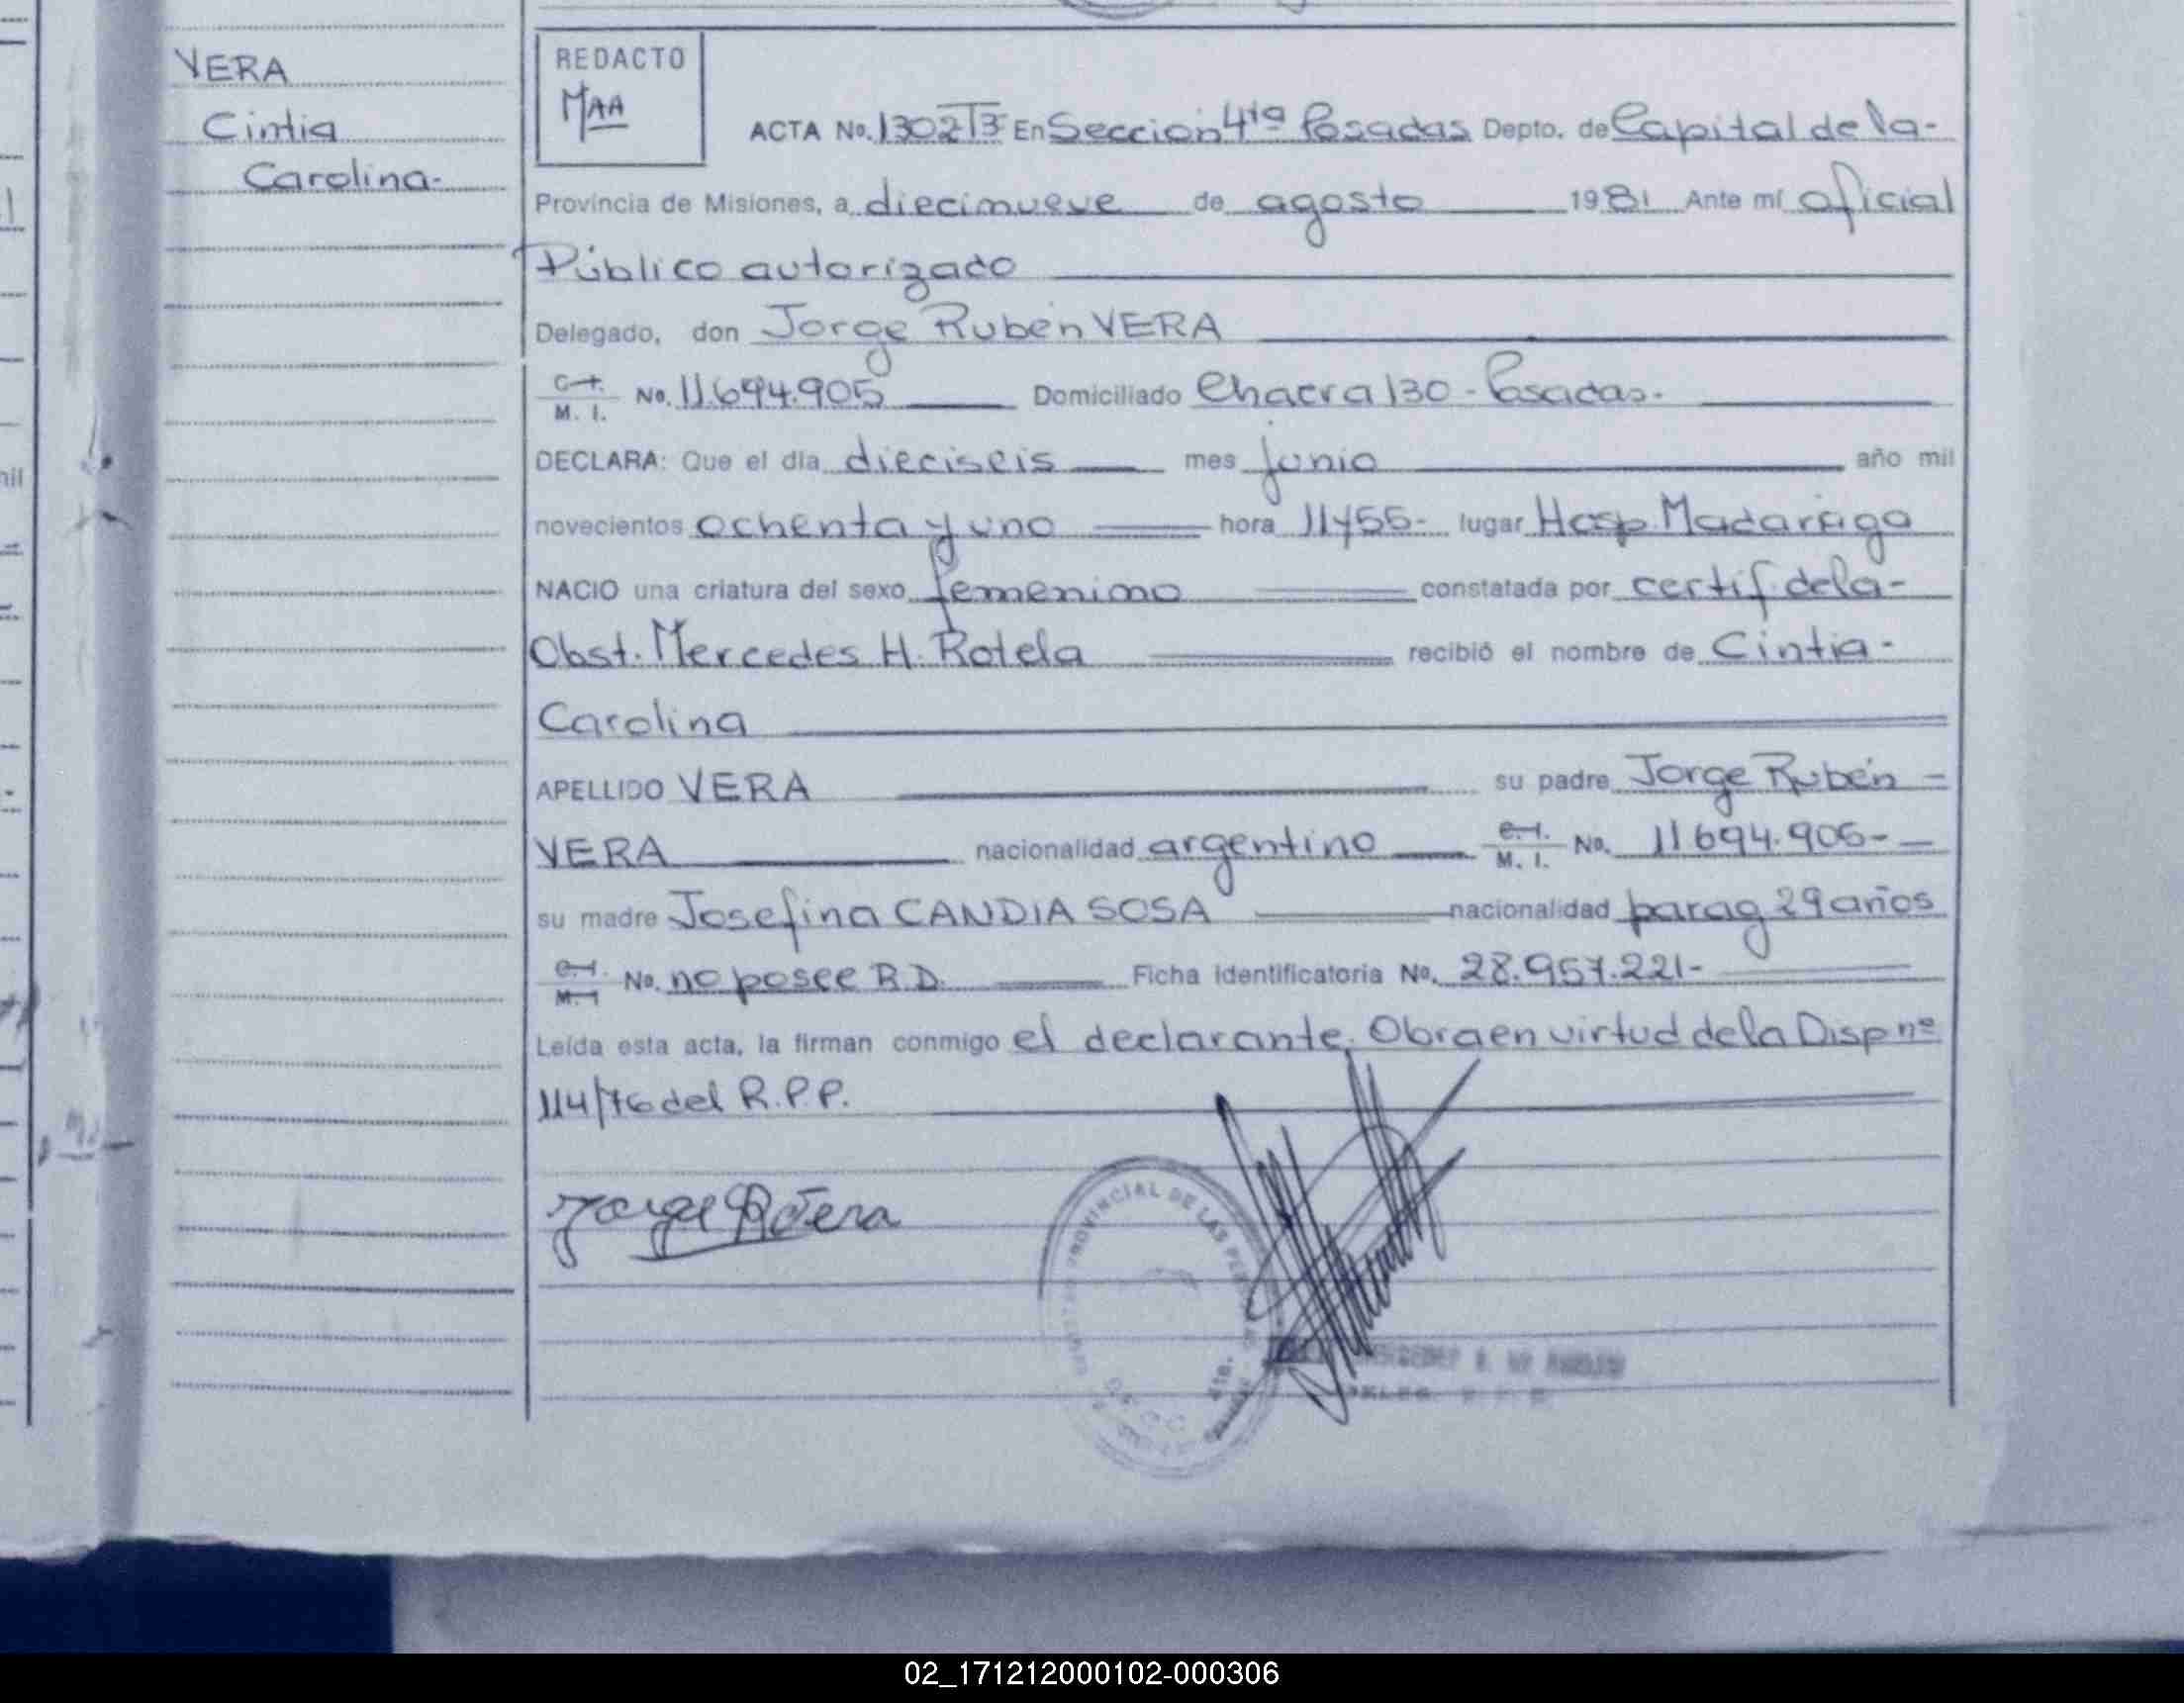 VERA
Cintia
Carolina-
REDACTO
MAA
ACTA No. 1302 T3 En Sección 4ta Posadas Depto. de Capital de la-
Provincia de Misiones, a diecinueve de agosto 1981 Ante mí oficial
Público autorizado
Delegado, don Jorge Rubén VERA
C.I. M. I. No. 11.694.905 Domiciliado Chacra 130 - Posadas.
DECLARA: Que el día dieciseis mes junio año mil
novecientos ochenta y uno hora 11y55- lugar Hosp. Madariaga
NACIO una criatura del sexo femenino constatada por certif. de la-
Obst. Mercedes H. Rotela recibió el nombre de Cintia-
Carolina
APELLIDO VERA su padre Jorge Rubén
VERA nacionalidad argentino C.I. M. I. No. 11694.905-
su madre Josefina CANDIA SOSA nacionalidad parag 29 años
C.I. M.I No. no posee R.D. Ficha identificatoria No. 28.957.221-
Leída esta acta, la firman conmigo el declarante. Obra en virtud de la Disp nº
114/76 del R.P.P.
Jorge R Vera
PROVINCIAL DE LAS
02_171212000102-000306